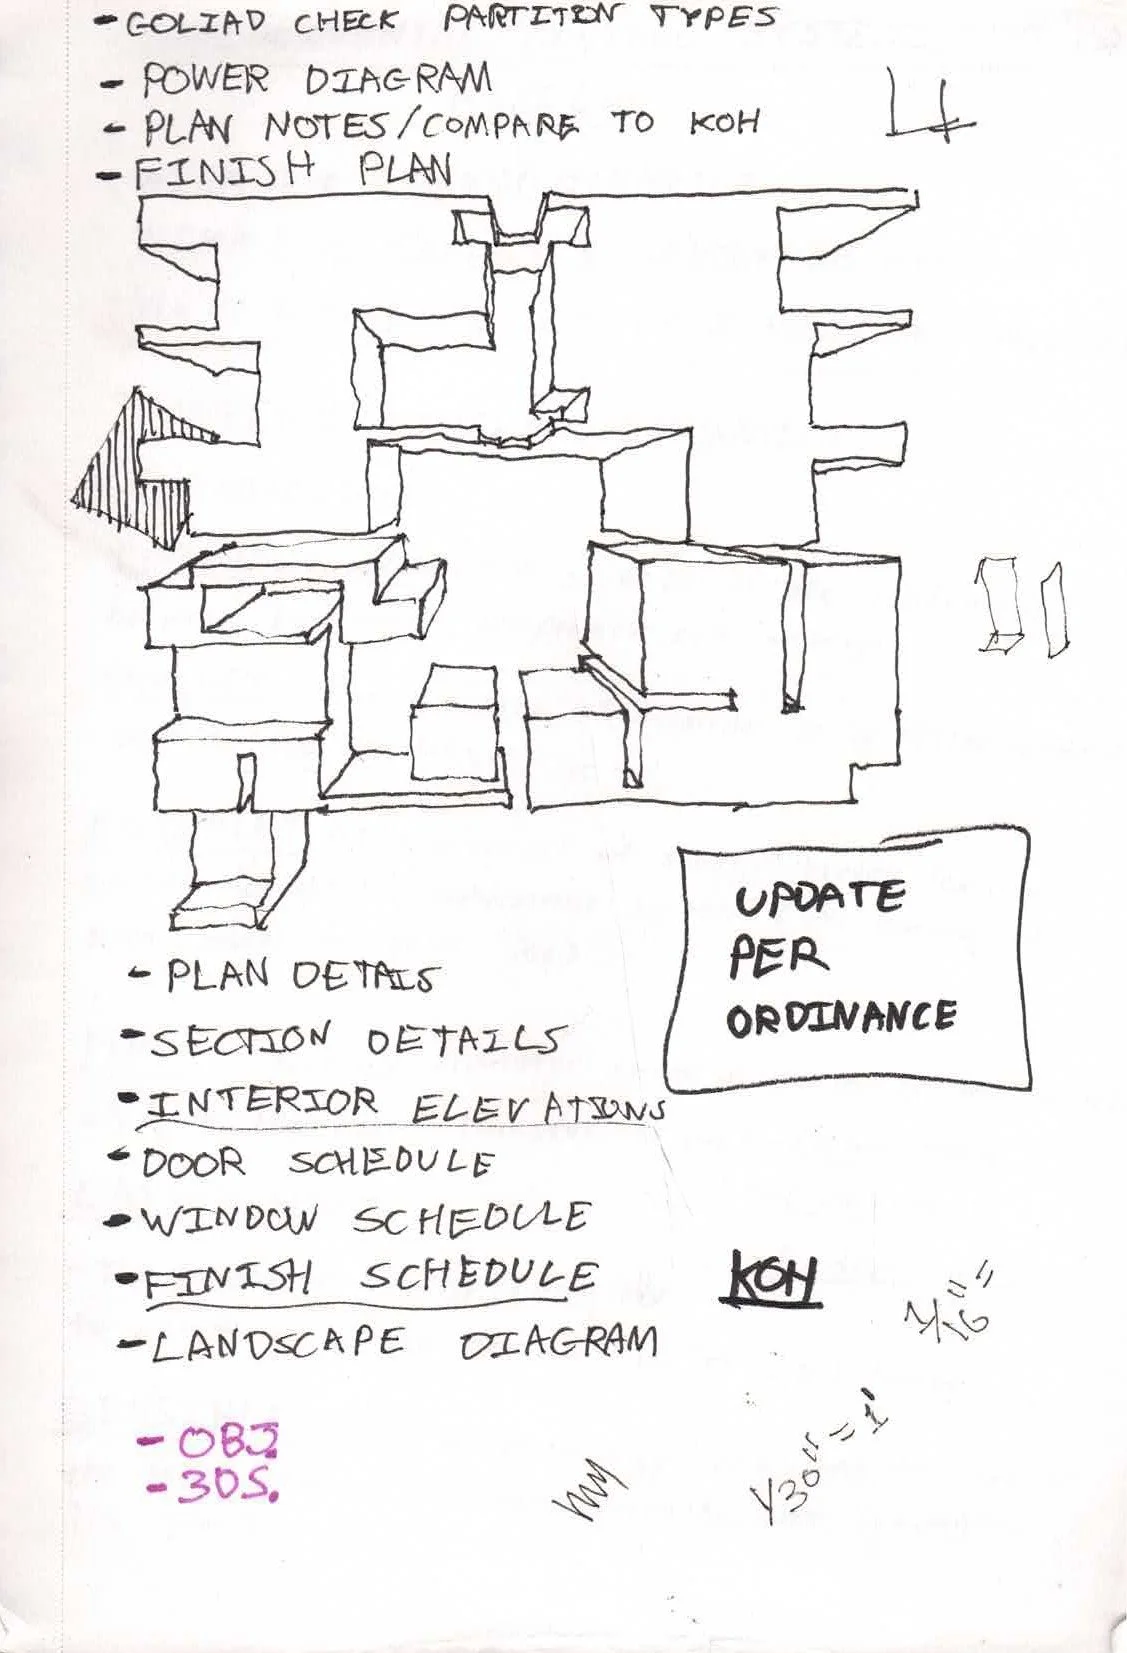 - GOLIAD CHECK PARTITION TYPES
- POWER DIAGRAM
- PLAN NOTES/COMPARE TO KOH
- FINISH PLAN
UPDATE
PER
ORDINANCE
- PLAN DETAILS
- SECTION DETAILS
- INTERIOR ELEVATIONS
- DOOR SCHEDULE
- WINDOW SCHEDULE
- FINISH SCHEDULE
KOH
1/16" =
- LANDSCAPE DIAGRAM
- OBJ.
- 3DS.
1/30" = 1'